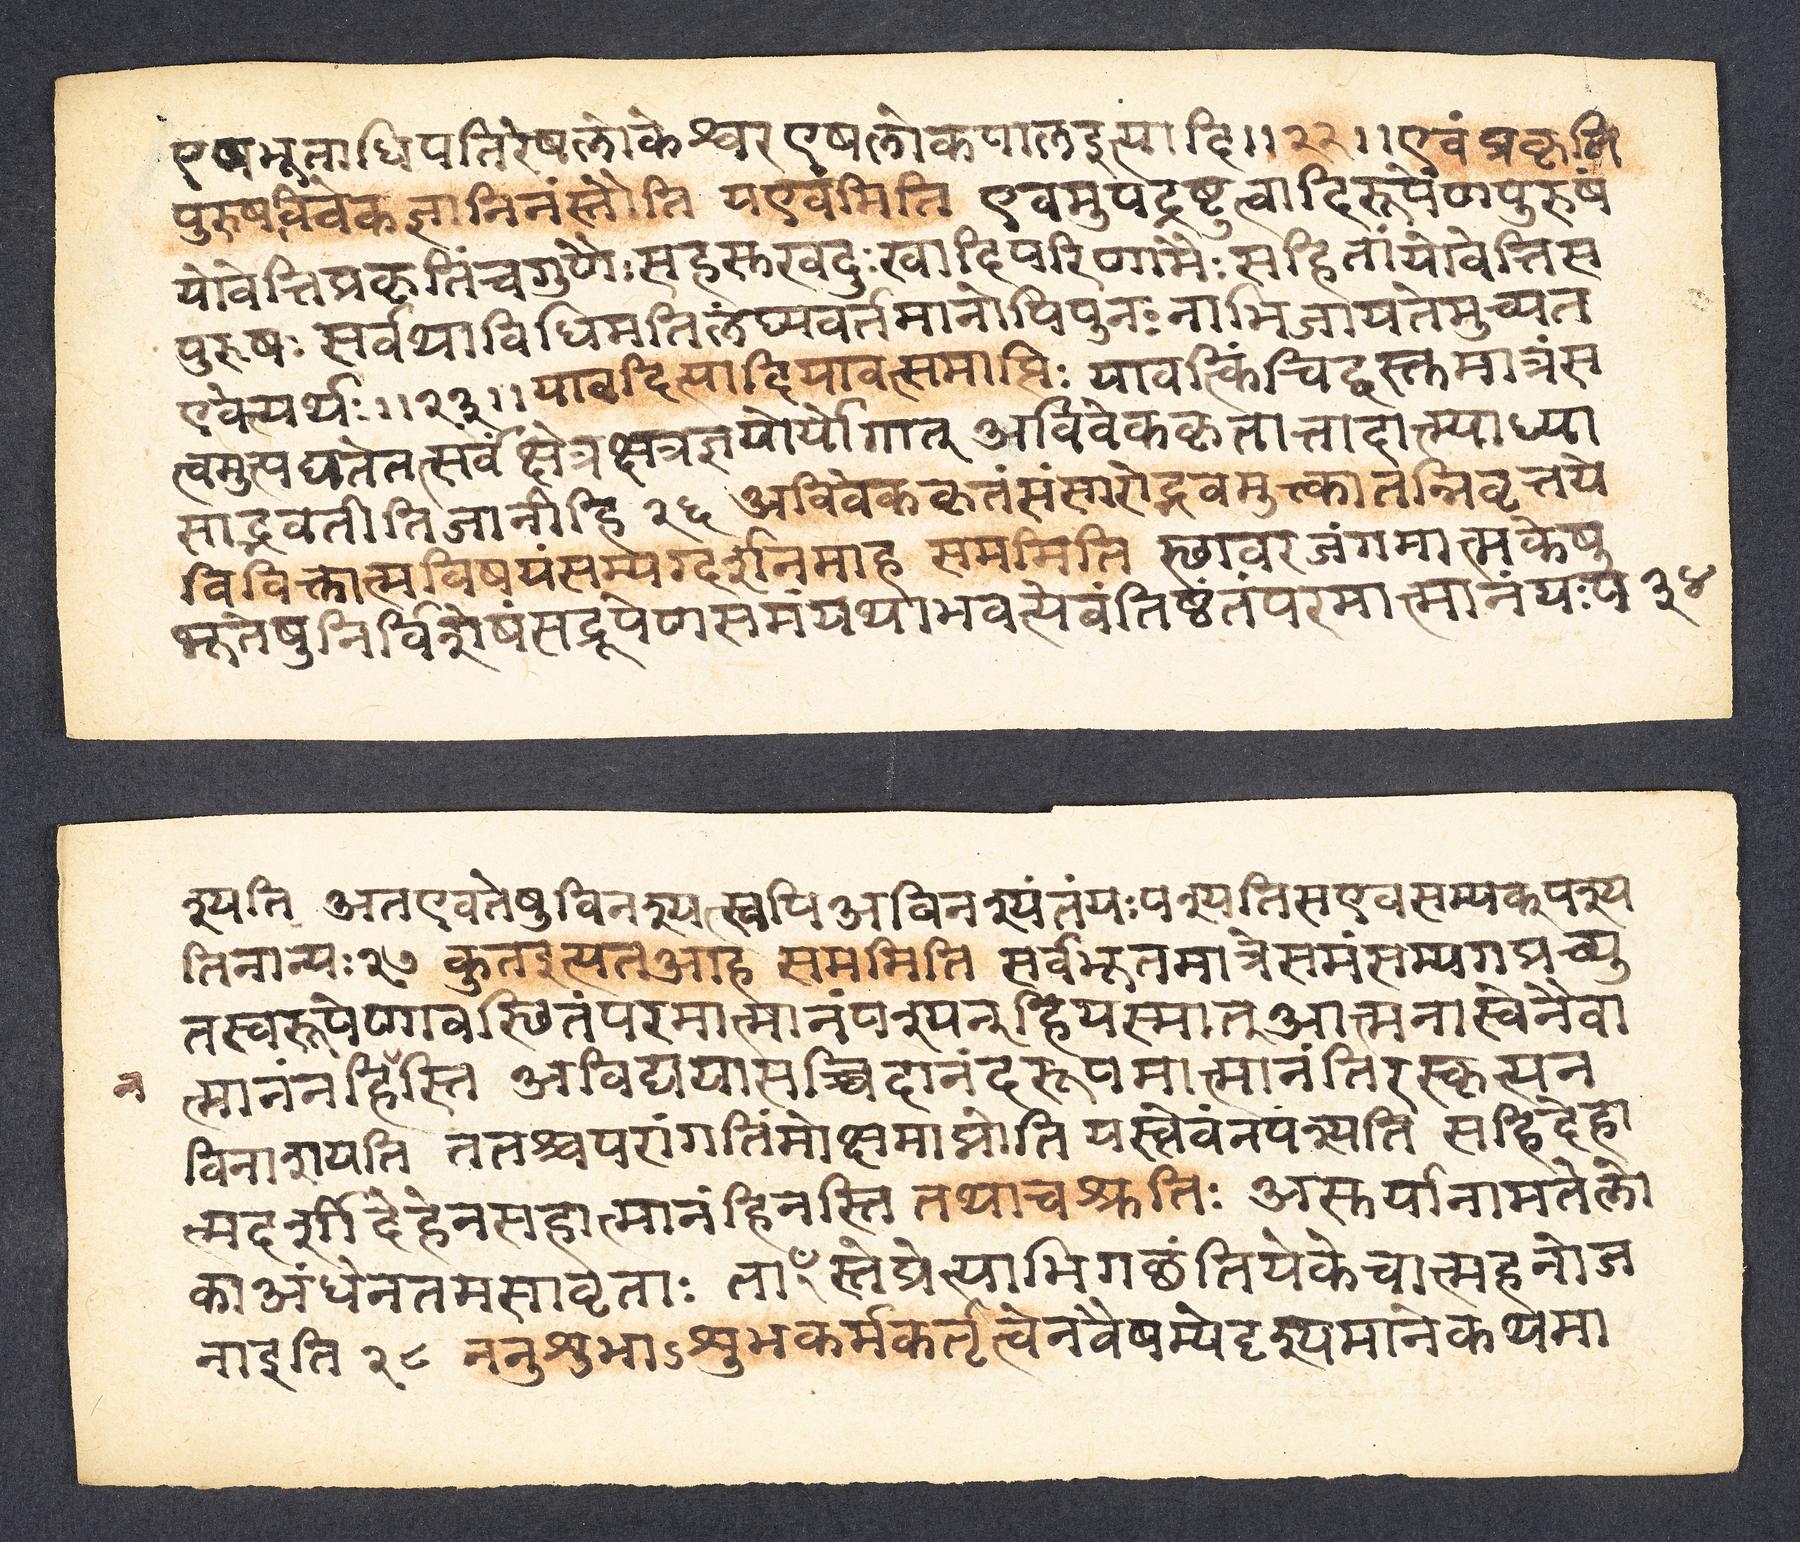 एषभूताधिपतिरेषलोकेश्वरएषलोकपालइत्यादि॥२२॥एवंप्रकृति
पुरुषविवेकज्ञानिनंस्तौति यएवंमिति एवमुपद्रष्टृत्वादिरूपेणपुरुषं
योवेत्तिप्रकृतिंचगुणैःसहसुखदुःखादिपरिणामैःसहितांयोवेत्तिस
पुरुषः सर्वथाविधिमतिलंघ्यवर्तमानोपिपुनःनाभिजायतेमुच्यत
एवेत्यर्थः॥२३॥यावदित्यादियावत्समाप्तिः यावत्किंचिद्वस्तुमात्रंस
त्वमुत्पद्यतेतत्सर्वंक्षेत्रक्षेत्रज्ञयोर्योगात् अविवेककृतात्तादात्म्याध्या
साद्भवतीतिजानीहि २६ अविवेककृतंसंसारोद्भवमुक्त्कातन्निवृत्तये
विविक्तात्मविषयंसम्यग्दर्शनमाह सममिति स्छावरजंगमात्मकेषु
भूतेषुनिर्विशेषंसद्रूपेणसमंयथाभवत्येवंतिष्ठंतंपरमात्मानंयःप ३४
श्यति अतएवतेषुविनश्यत्स्वपिअविनश्यंतंयःपश्यतिसएवसम्यक्पश्य
तिनान्यः२७ कुतइत्यतआह सममिति सर्वभूतमात्रेसमंसम्यगप्रच्यु
तस्वरूपेणावस्छितंपरमात्मानंपश्यन्हियस्मात्आत्मनास्वेनैवा
त्मानंनहिँस्ति अविद्ययासच्चिदानंदरूपमात्मानंतिरस्कृत्यन
न
विनाशयति ततश्चपरांगतिंमोक्षमाप्नोति यस्त्वेवंनपश्यति सहिदेहा
त्मदर्शीदेहेनसहात्मानंहिनस्ति तथाचश्रुतिः असुर्यानामतेलो
काअंधेनतमसावृताः ताꣳस्तेप्रेत्याभिगछंतियेकेचात्महनोज
नाइति २८ ननुशुभाऽशुभकर्मकर्तृत्वेनवैषम्येदृश्यमानेकथमा